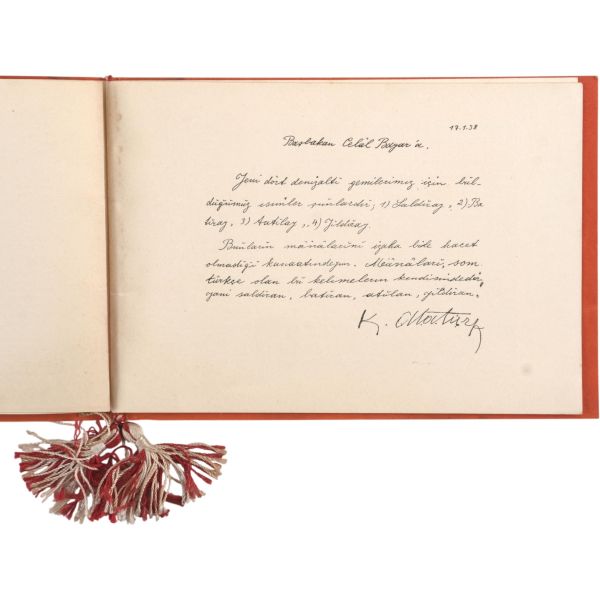 17.1.38
Başbakan Celâl Bayar'a.
Yeni dört denizaltı gemilerimiz için bul-
duğumuz isimler şunlardır; 1) Saldıray, 2) Ba
tıray, 3) Atılay, 4) Yıldıray.
Bunların mânâlarını izaha bile hacet
olmadığı kanaatındayım. Mânâları, som
türkçe olan bu kelimelerin kendisindedir,
yani saldıran, batıran, atılan, yıldıran.
K. Atatürk